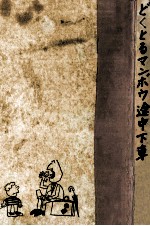 どくとるマンボウ途中下車